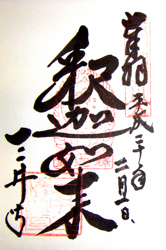 奉拝 平成二十年二月一日
釈迦如来
三井寺